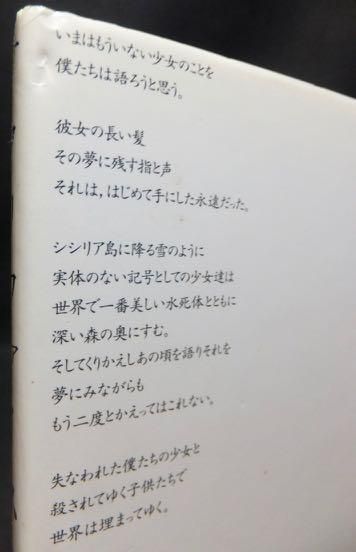 いまはもういない少女のことを
僕たちは語ろうと思う。
彼女の長い髪
その夢に残す指と声
それは，はじめて手にした永遠だった。
シシリア島に降る雪のように
実体のない記号としての少女達は
世界で一番美しい水死体とともに
深い森の奥にすむ。
そしてくりかえしあの頃を語りそれを
夢にみながらも
もう二度とかえってはこれない。
失なわれた僕たちの少女と
殺されてゆく子供たちで
世界は埋まってゆく。